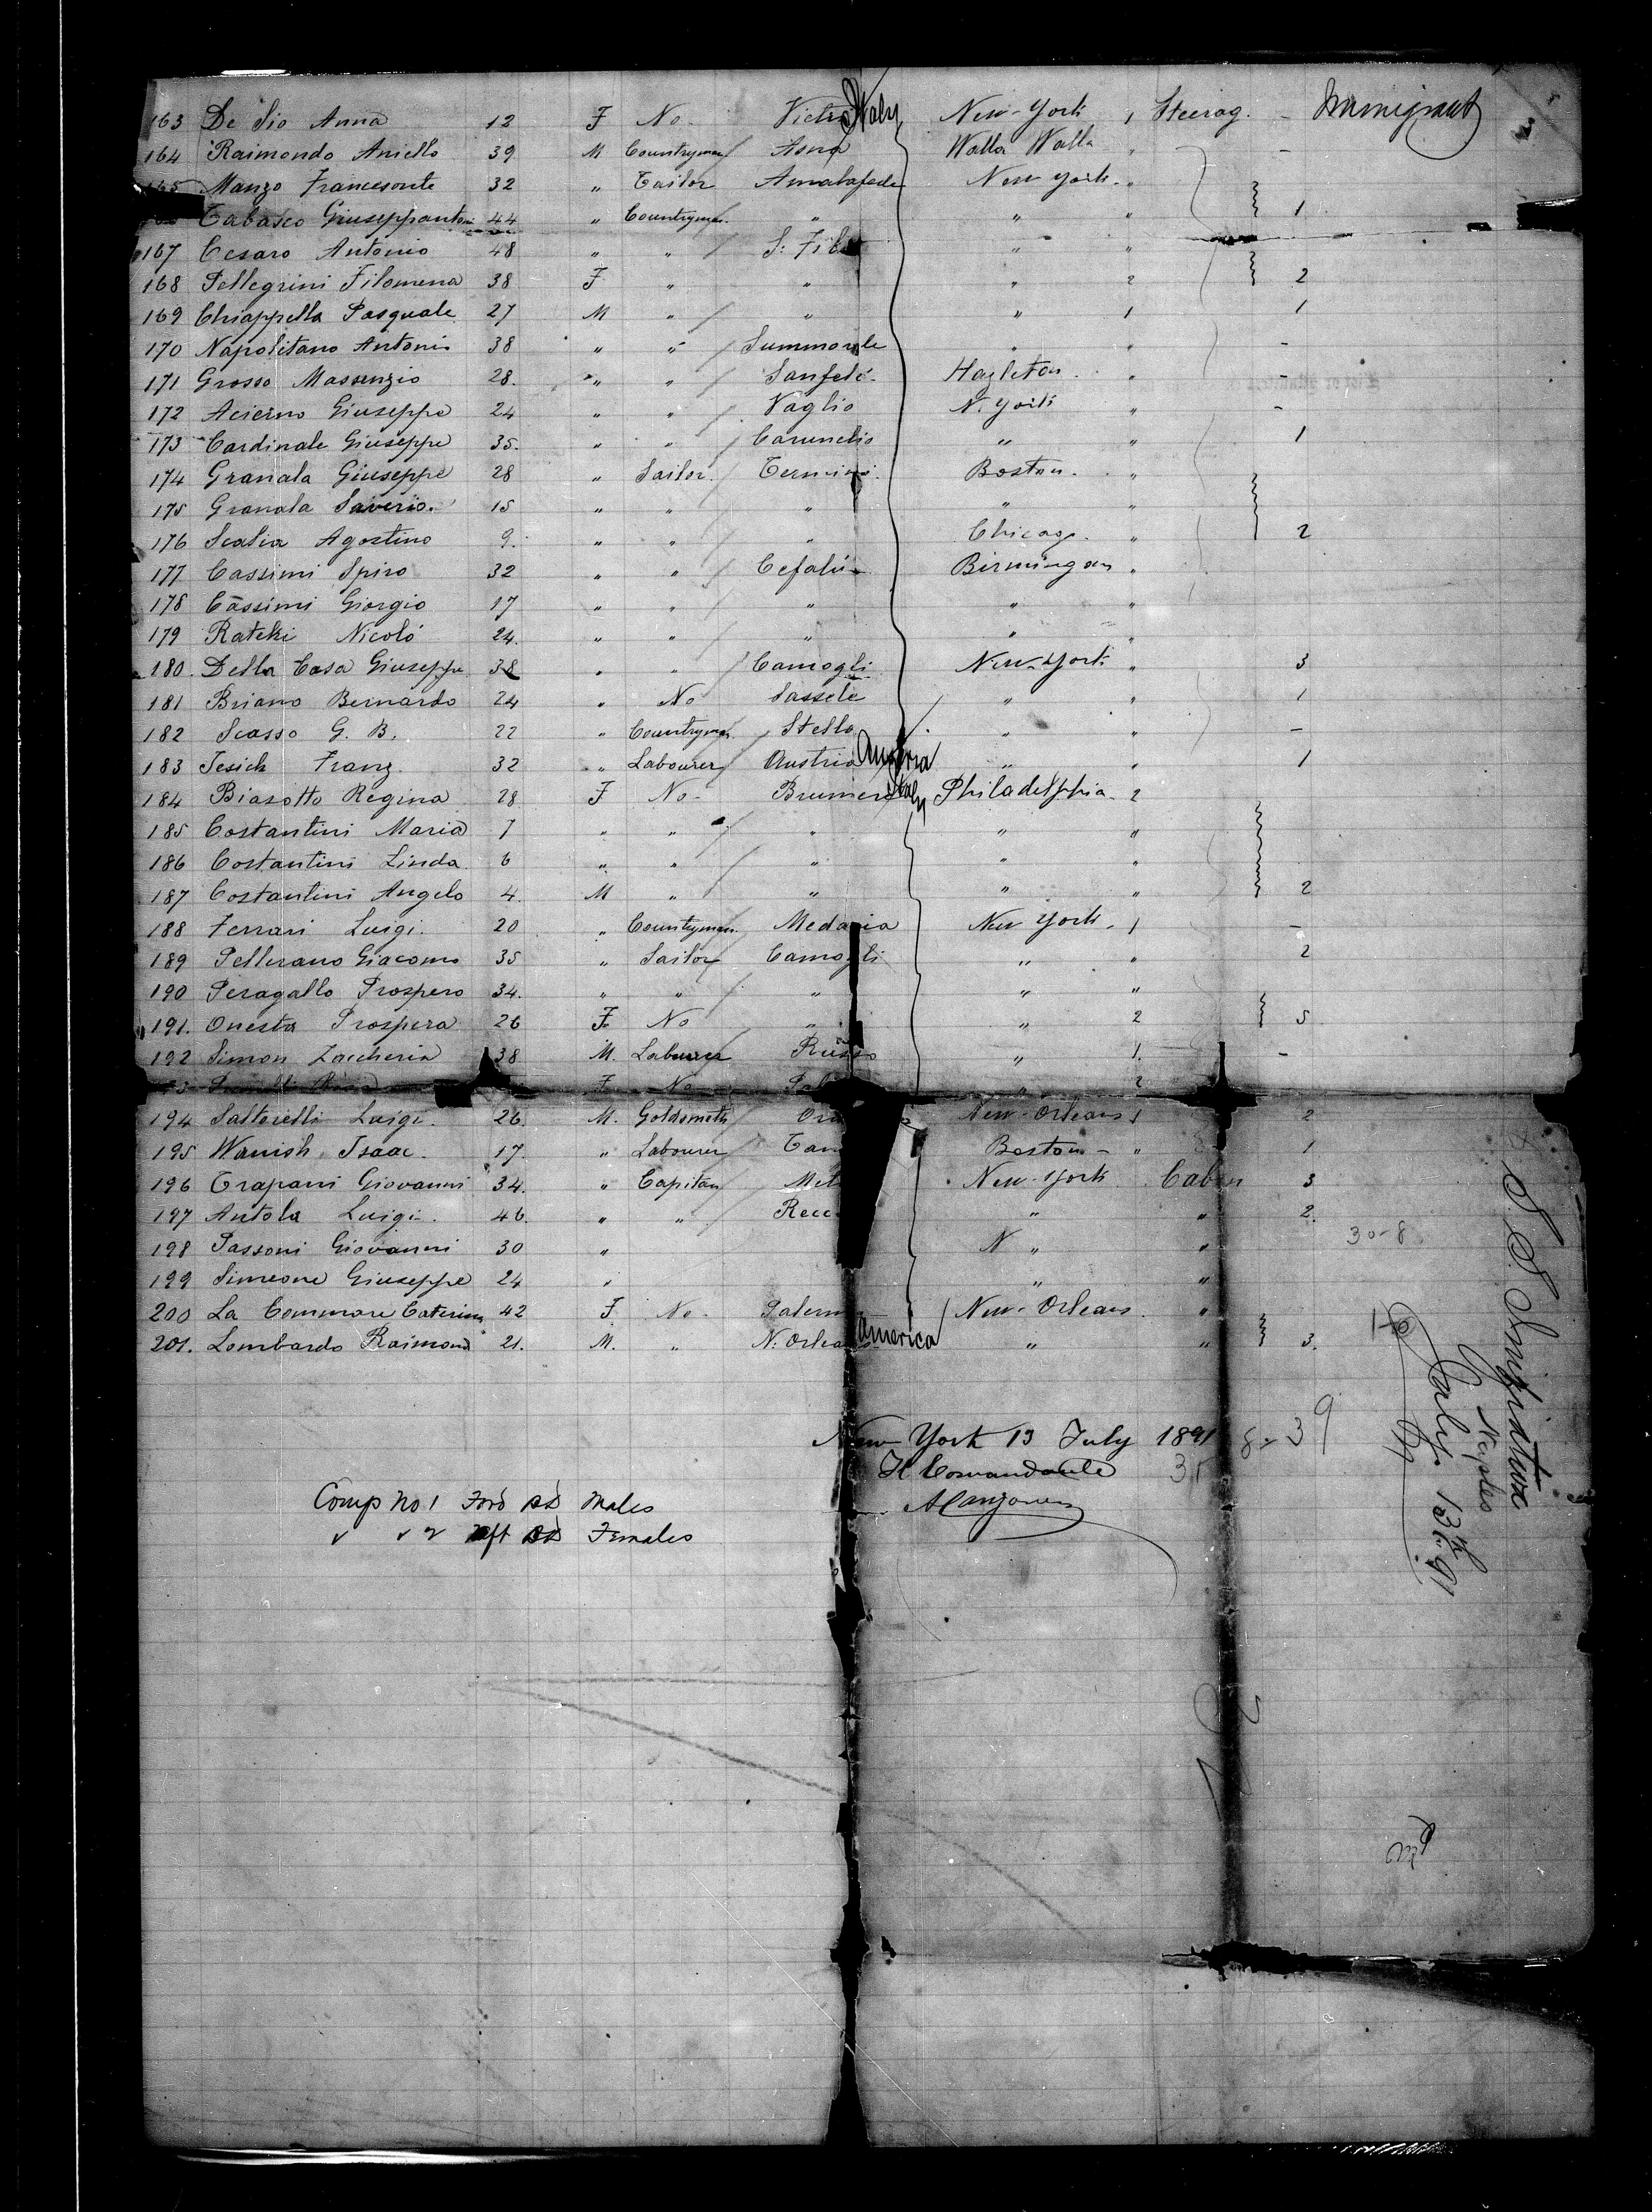 163 De Sio Anna 12 F No Vietri Italy New-York 1 Steerag. - Immigrant
164 Raimondo Aniello 39 M Countryman / Walla Walla " -
165 Manzo 32 " Tailor New York "
Tabasco Giuseppantonio 44 " Countryman. " " " 1
167 Cesaro Antonio 48 " " / " "
168 Pellegrini Filomena 38 F " " " 2 2
169 Chiappella Pasquale 27 M " / " " 1 1
170 Napolitano Antonio 38 " " / Summonte " " -
171 Grosso Massenzio 28. " " / Sanfele. Hazleton. " -
172 Acierno Giuseppe 24 " " / Vaglio N. York " -
173 Cardinale Giuseppe 35. " " / " " 1
174 Granata Giuseppe 28 " Sailor. / Termini. Boston. "
175 Granata Saverio. 15 " " " " "
176 Scalia Agostino 9. " " / " Chicago. " 2
177 Cassimi Spiro 32 " " / Cefalù Birmingan "
178 Cassimi Giorgio 17 " " / " " "
179 Nicoló 24. " " / " " "
180. Della Casa Giuseppe 38 " " / Camogli New-York " 3
181 Briano Bernardo 24 " No Sassele / " " 1
182 Scasso G. B. 22 " Countryman / Stella / " " -
183 Jesich Franz. 32 " Labourer / Austria Austria / " " 1
184 Biasotto Regina 28 F No - Italy Philadelphia. 2
185 Costantini Maria 7 " " / " " "
186 Costantini Linda 6 " " / " " "
187 Costantini Angelo 4. M " / " " " 2
188 Ferrari Luigi. 20 " Countryman. / New York. 1 -
189 Pellerano Giacomo 35 " Sailor / Camogli " " 2
190 Peragallo Prospero 34. " " / " " "
191. Onesta Prospera 26 F. No " " 2 5
192 Simon Zaccheria 38 M. Labourer Russo " 1. -
F. No " 2
194 Saltorelli Luigi. 26. M. Goldsmith / New-Orleans 1 2
195 Wanish Isaac. 17. " Labourer / Boston - " 1
196 Trapani Giovanni 34. " Capitan / New-York Cabin 3
197 Antola Luigi. 46. " " / Recc " " 2.
198 Passoni Giovanni 30 " N " " 30-8
199 Simeone Giuseppe 24 " " "
200 La Commare Caterina 42 F. No - Palerm New-Orleans "
201. Lombardo Raimond 21. M. " N. Orlea America / " " 3.
New York 13 July 1891
Il Comandante
Comp No 1 Ford Males
" " 2 Aft Females
S. S. Iniziativa
Naples
July 13th 91